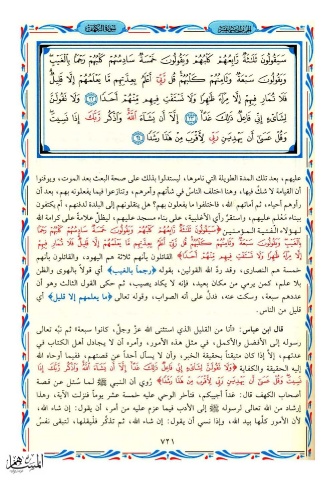 سَيَقُولُونَ ثَلَاثَةٌ رَابِعُهُمْ كَلْبُهُمْ وَيَقُولُونَ خَمْسَةٌ سَادِسُهُمْ كَلْبُهُمْ رَجْمًا بِالْغَيْبِ
وَيَقُولُونَ سَبْعَةٌ وَثَامِنُهُمْ كَلْبُهُمْ قُل رَّبِّي أَعْلَمُ بِعِدَّتِهِم مَّا يَعْلَمُهُمْ إِلَّا قَلِيلٌ
فَلَا تُمَارِ فِيهِمْ إِلَّا مِرَاءً ظَاهِرًا وَلَا تَسْتَفْتِ فِيهِم مِّنْهُمْ أَحَدًا ﴿٢٢﴾ وَلَا تَقُولَنَّ
لِشَاْىءٍ إِنِّي فَاعِلٌ ذَٰلِكَ غَدًا ﴿٢٣﴾ إِلَّا أَن يَشَاءَ اللَّهُ وَاذْكُر رَّبَّكَ إِذَا نَسِيتَ
وَقُلْ عَسَىٰ أَن يَهْدِيَنِ رَبِّي لِأَقْرَبَ مِنْ هَٰذَا رَشَدًا ﴿٢٤﴾
عليهم، بعد تلك المدة الطويلة التي ناموها، ليستدلوا بذلك على صحة البعث بعد الموت، ويوقنوا
أن القيامة لا شك فيها، وهنا اختلف الناس في شأنهم وأمرهم، وتنازعوا فيما يفعلونه بهم، بعد أن
رأوهم أحياء، ثم أماتهم الله، فاختلفوا ما يفعلون بهم؟ هل ينقلونهم إلى البلدة لدفنهم، أم يكتفون
ببناء مَعْلم عليهم، واستقرَّ رأي الأغلبية، على بناء مسجد عليهم، ليظلَّ علامةً على كرامة الله
لهؤلاء الفتية المؤمنين ﴿سَيَقُولُونَ ثَلَاثَةٌ رَابِعُهُمْ كَلْبُهُمْ وَيَقُولُونَ خَمْسَةٌ سَادِسُهُمْ كَلْبُهُمْ رَجْمًا
بِالْغَيْبِ وَيَقُولُونَ سَبْعَةٌ وَثَامِنُهُمْ كَلْبُهُمْ قُل رَّبِّي أَعْلَمُ بِعِدَّتِهِم مَّا يَعْلَمُهُمْ إِلَّا قَلِيلٌ فَلَا تُمَارِ فِيهِمْ
إِلَّا مِرَاءً ظَاهِرًا وَلَا تَسْتَفْتِ فِيهِم مِّنْهُمْ أَحَدًا﴾ القائلون بأنهم ثلاثة هم اليهود، والقائلون بأنهم
خمسة هم النصارى، وقد ردَّ الله القولين، بقوله ﴿رجماً بالغيب﴾ أي قولاً بالهوى والظن
بلا علم، كمن يرمي من مكان بعيد، فإنه لا يكاد يصيب، ثم حكى القول الثالث وهو أن
عددهم سبعة، وسكت عنه، فدلَّ على أنه الصواب، وقوله تعالى ﴿ما يعلمهم إلا قليل﴾ أي
قليل من الناس.
قال ابن عباس: «أنا من القليل الذي استثنى الله عزَّ وجلَّ، كانوا سبعة» ثم نبَّه تعالى
رسوله إلى الأفضل والأكمل، في مثل هذه الأمور، وأمره أن لا يجادل أهل الكتاب في
عدتهم، إلاَّ إذا كان متيقناً بحقيقة الخبر، وأن لا يسأل أحداً عن قصتهم، ففيما أوحاه الله
إليه الحقيقة والكفاية ﴿وَلَا تَقُولَنَّ لِشَاْىءٍ إِنِّي فَاعِلٌ ذَٰلِكَ غَدًا إِلَّا أَن يَشَاءَ اللَّهُ وَاذْكُر رَّبَّكَ إِذَا
نَسِيتَ وَقُلْ عَسَىٰ أَن يَهْدِيَنِ رَبِّي لِأَقْرَبَ مِنْ هَٰذَا رَشَدًا﴾ رُوي أن النبي ﷺ لما سُئل عن قصة
أصحاب الكهف قال: غداً أجيبكم، فتأخر الوحي عليه خمسة عشر يوماً فنزلت الآية، وهذا
إرشاد من الله تعالى لرسوله ﷺ إلى الأدب فيما عزم عليه من أمر، أن يقول: إن شاء الله،
لأن الأمور كلَّها بيد الله، وإذا نسي أن يقول: إن شاء الله، ثم تذكَّر فليقلها، لتبقى نفسُ
٧٢١